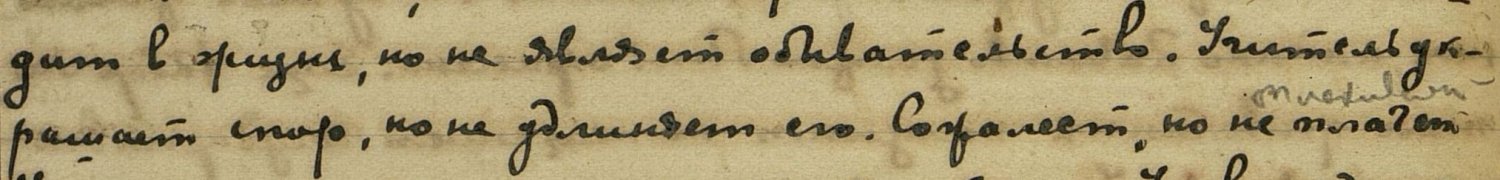 дит в жизни, но не являет обывательство. Учитель ук-
рашает спор, но не удлиняет его. Сожалеет, но не плачет